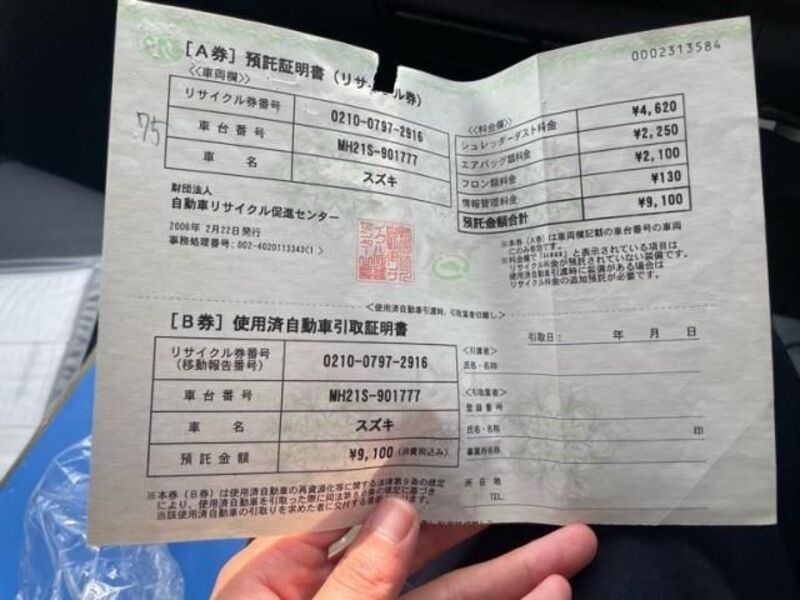 0002313584
[A券] 預託証明書 (リサ クル券)
<<車両欄>>
リサイクル券番号 0210-0797-2916
車台番号 MH21S-901777
車名 スズキ
75
<<料金欄>>
シュレッダーダスト料金 ¥4,620
エアバッグ類料金 ¥2,250
フロン類料金 ¥2,100
情報管理料金 ¥130
預託金額合計 ¥9,100
財団法人
自動車リサイクル促進センター
2006年 2月22日発行
事務処理番号:002-4020113343(1 )
※本券(A券)は車両欄記載の車台番号の車両
にのみ有効です。
※料金欄で と表示されている項目は
リサイクル料金が預託されていない装備です。
使用済自動車引渡時に装備がある場合は
リサイクル料金の追加預託が必要です。
<使用済自動車引渡時、引取業者切離し>
[B券] 使用済自動車引取証明書
リサイクル券番号
(移動報告番号) 0210-0797-2916
車台番号 MH21S-901777
車名 スズキ
預託金額 ¥9,100 (消費税込み)
引取日: 年 月 日
<引渡者>
氏名・名称
<引取業者>
登録番号
氏名・名称 印
事業所名称
所在地
TEL.
※本券(B券)は使用済自動車の再資源化等に関する法律第9条の規定
により、使用済自動車を引取った際に同法第80条の規定に基づき
当該使用済自動車の引取りを求めた者に交付する書面